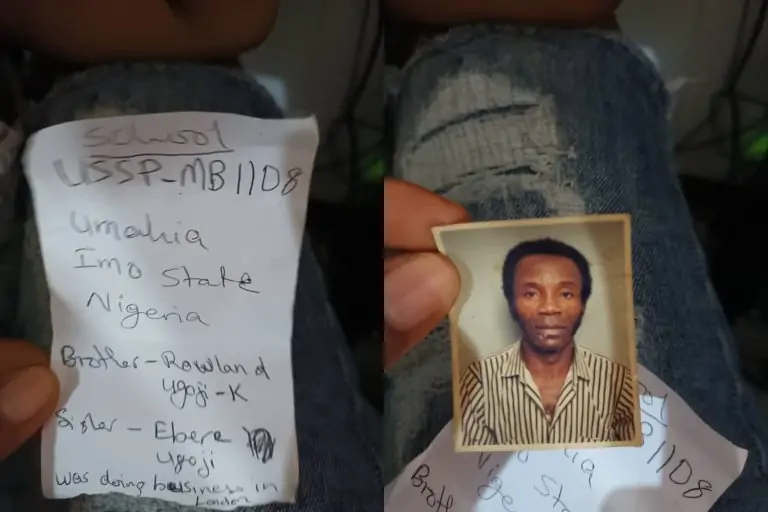 School
USSP-MB11D8
Umahia
Imo State
Nigeria
Brother - Rowland
Ugoji - K
Sister - Ebere
Ugoji
was doing business in
London
11D8
Broth
Nige
Sta